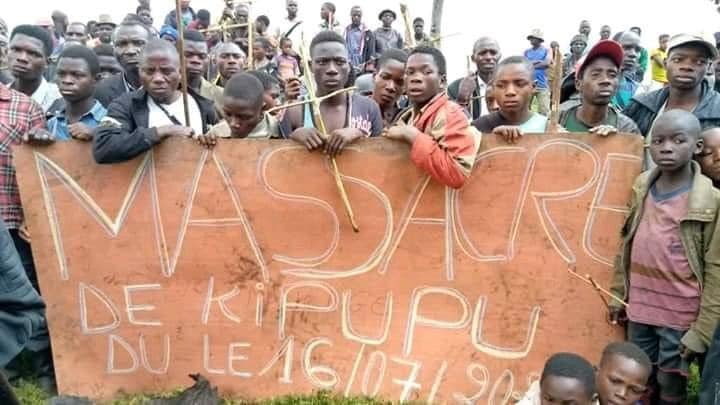 MASSACRE
DE KiPUPU
DU LE 16/07/20